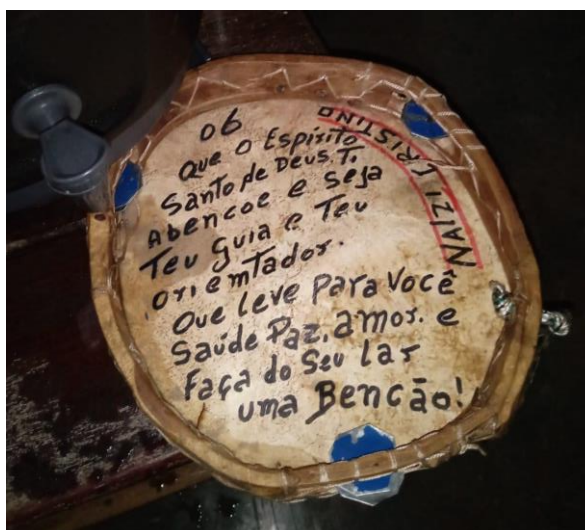 06
Que o Espirito
Santo de Deus. Ti
Abencoe e seja
Teu Guia e Teu
oriemtador.
Que leve para Você
Saúde Paz. amor. e
Faça do Seu Lar
uma Bencão!
NAIZI CRISTINO